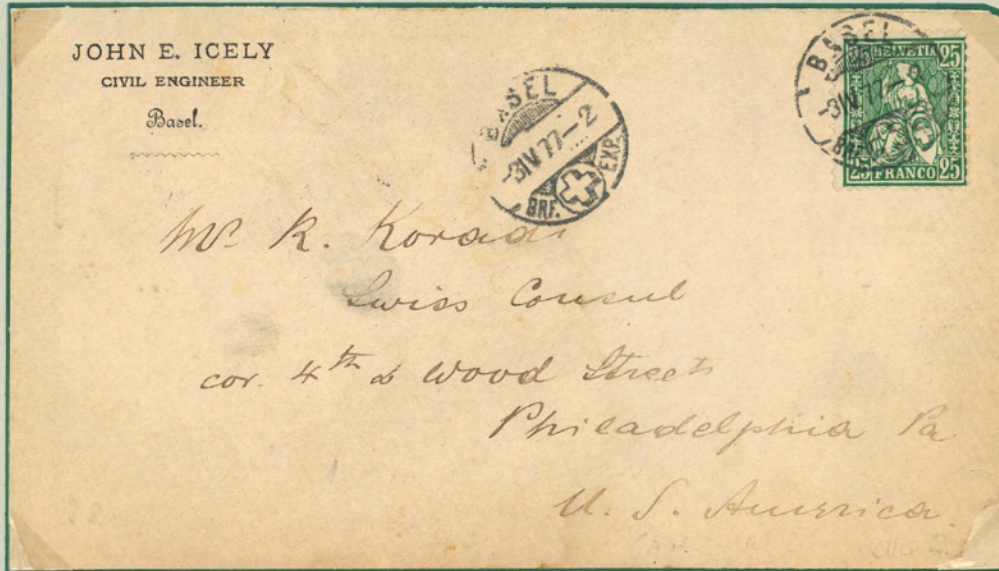 JOHN E. ICELY
CIVIL ENGINEER
Basel.
BASEL
-3 IV 77-2
BRF. EXP.
BASEL
-3 IV 77-
25 HELVETIA 25
25 FRANCO 25
Mr R. Koradi
Swiss Consul
cor. 4th & Wood Streets
Philadelphia Pa
U. S. America